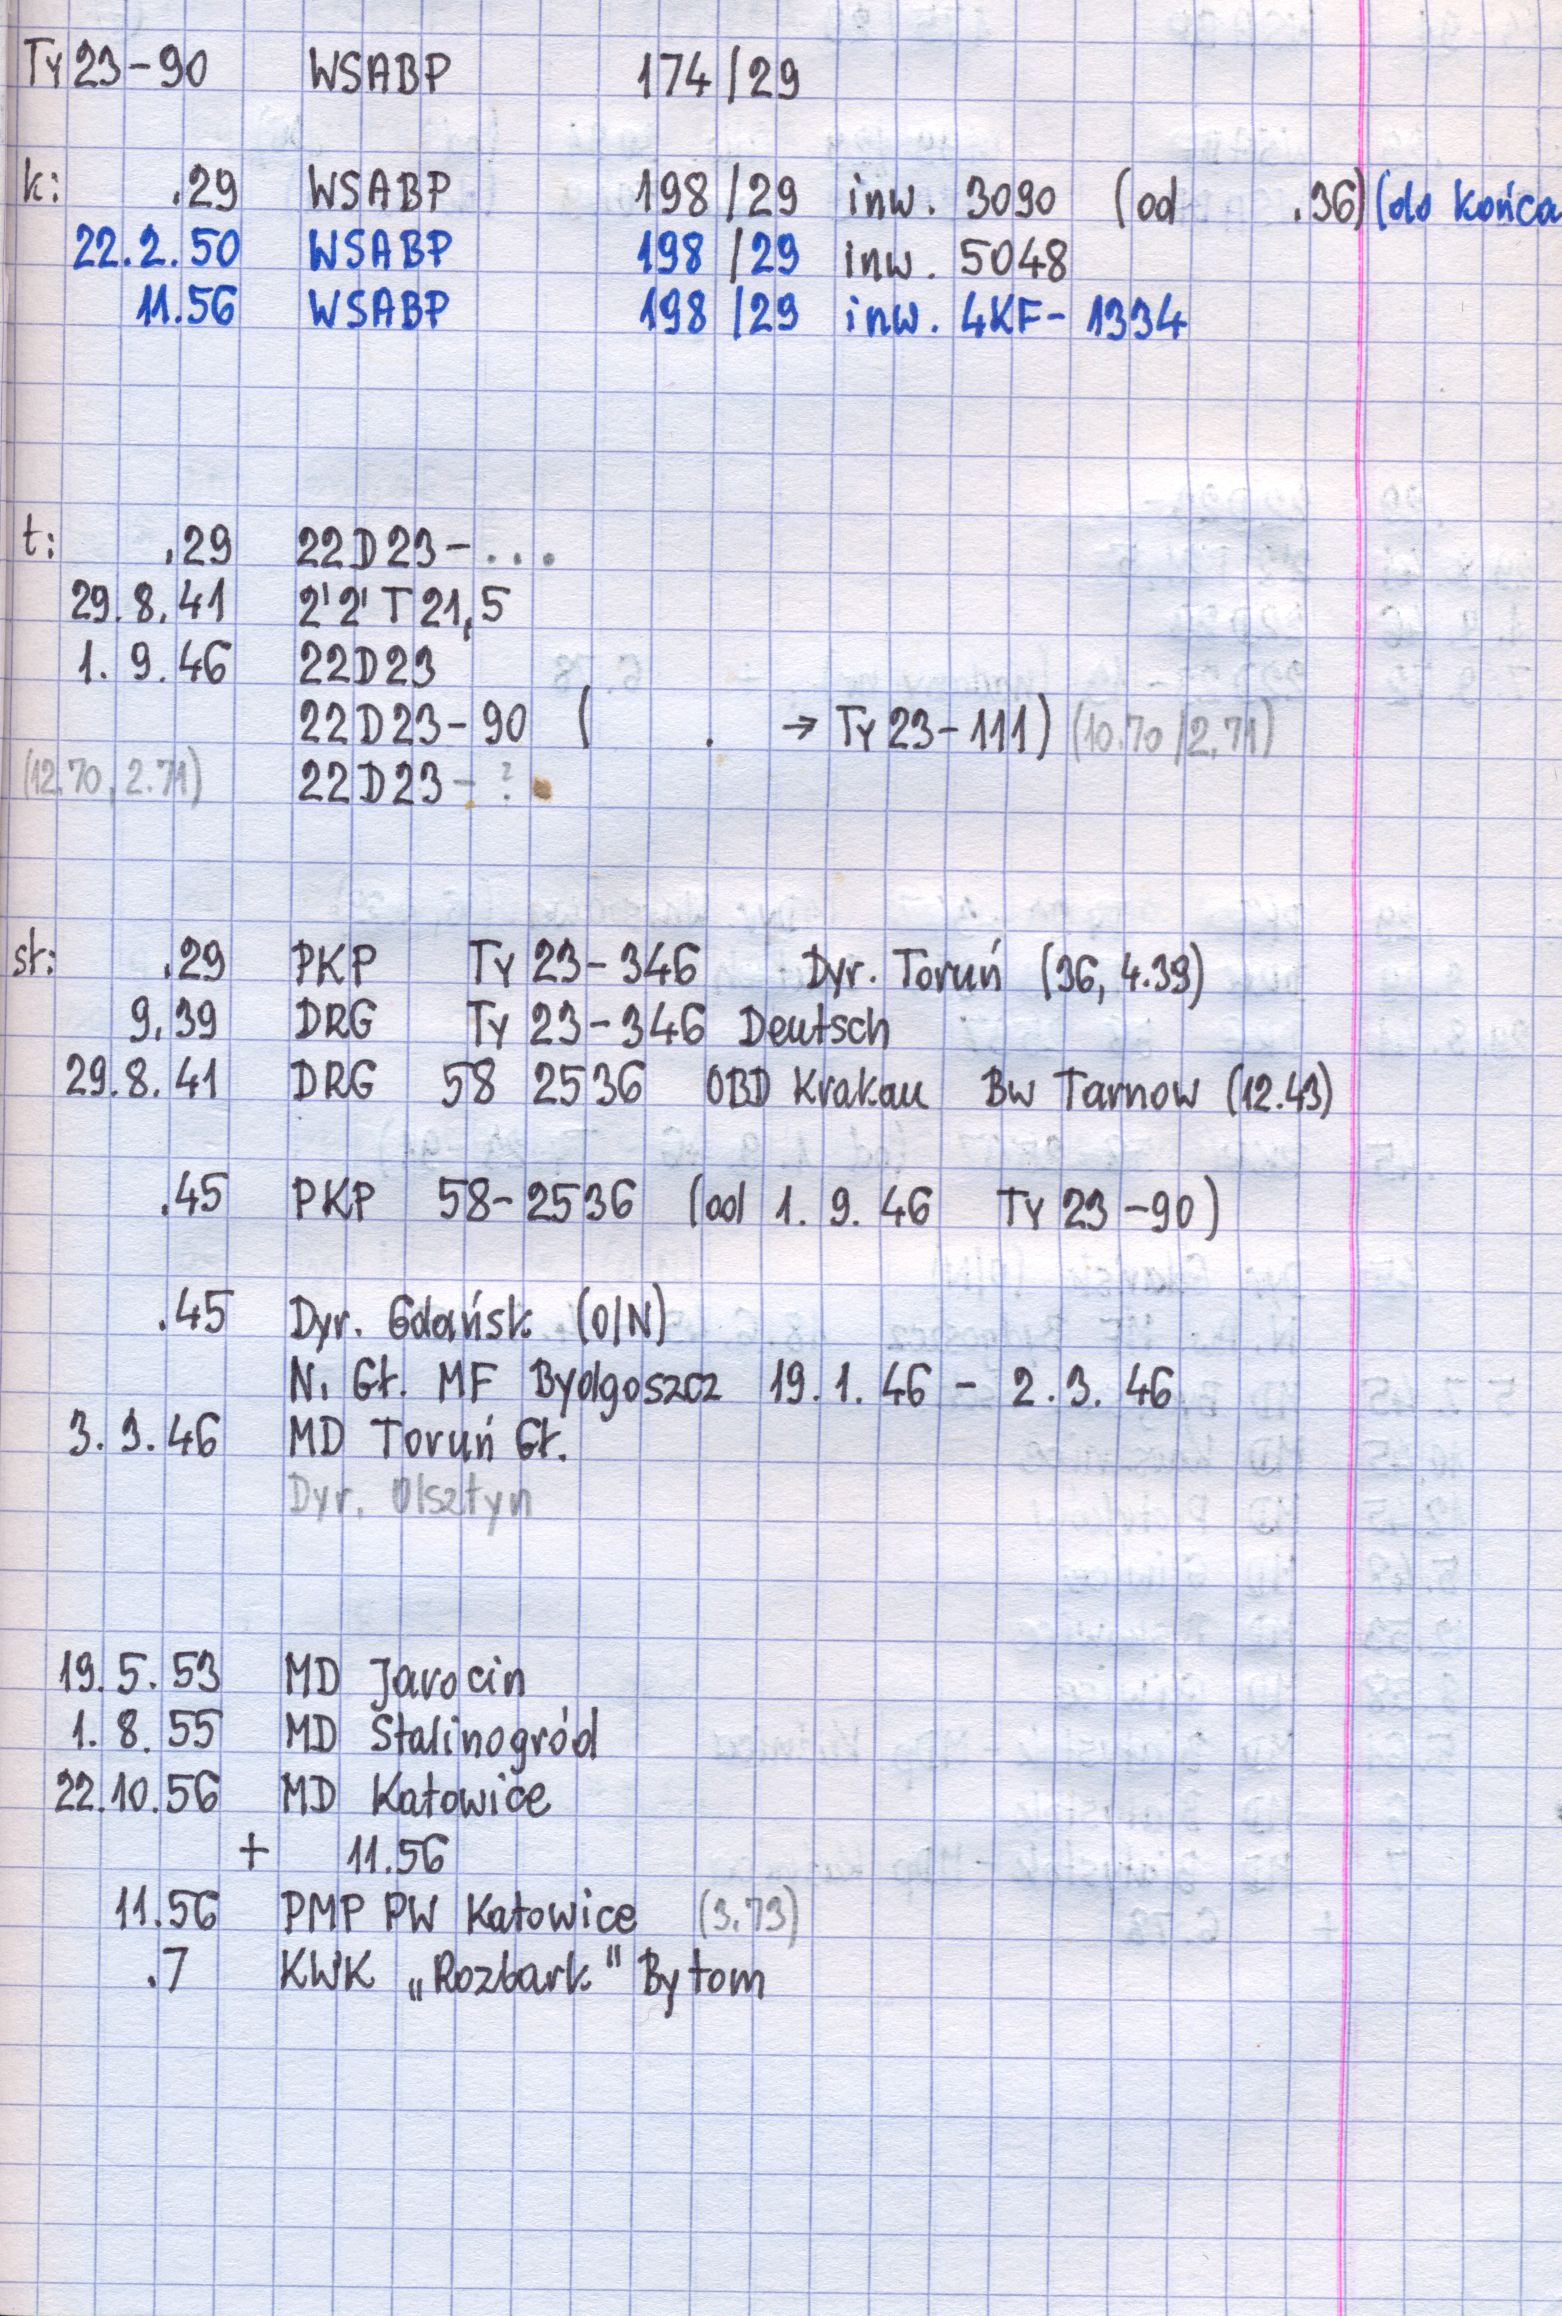 Ty 23-90 WSABP 174/29
k: .29 WSABP 198/29 inw. 3090 (od .36) (do końca
22.2.50 WSABP 198/29 inw. 5048
11.56 WSABP 198/29 inw. 4KF-1334
t: .29 22D23-...
29.8.41 2'2'T21,5
1.9.46 22D23
22D23-90 ( . → Ty 23-111) (10.70/2.71)
(12.70, 2.71) 22D23-?
st: .29 PKP Ty 23-346 Dyr. Toruń (36, 4.39)
9.39 DRG Ty 23-346 Deutsch
29.8.41 DRG 58 2536 OBD Krakau Bw Tarnow (12.43)
.45 PKP 58-2536 (od 1.9.46 Ty 23-90)
.45 Dyr. Gdańsk (O/N)
N. Gł. MF Bydgoszcz 19.1.46 - 2.3.46
3.3.46 MD Toruń Gł.
Dyr. Olsztyn
19.5.53 MD Jarocin
1.8.55 MD Stalinogród
22.10.56 MD Katowice
+ 11.56
11.56 PMP PW Katowice (3.73)
.7 KWK „Rozbark" Bytom